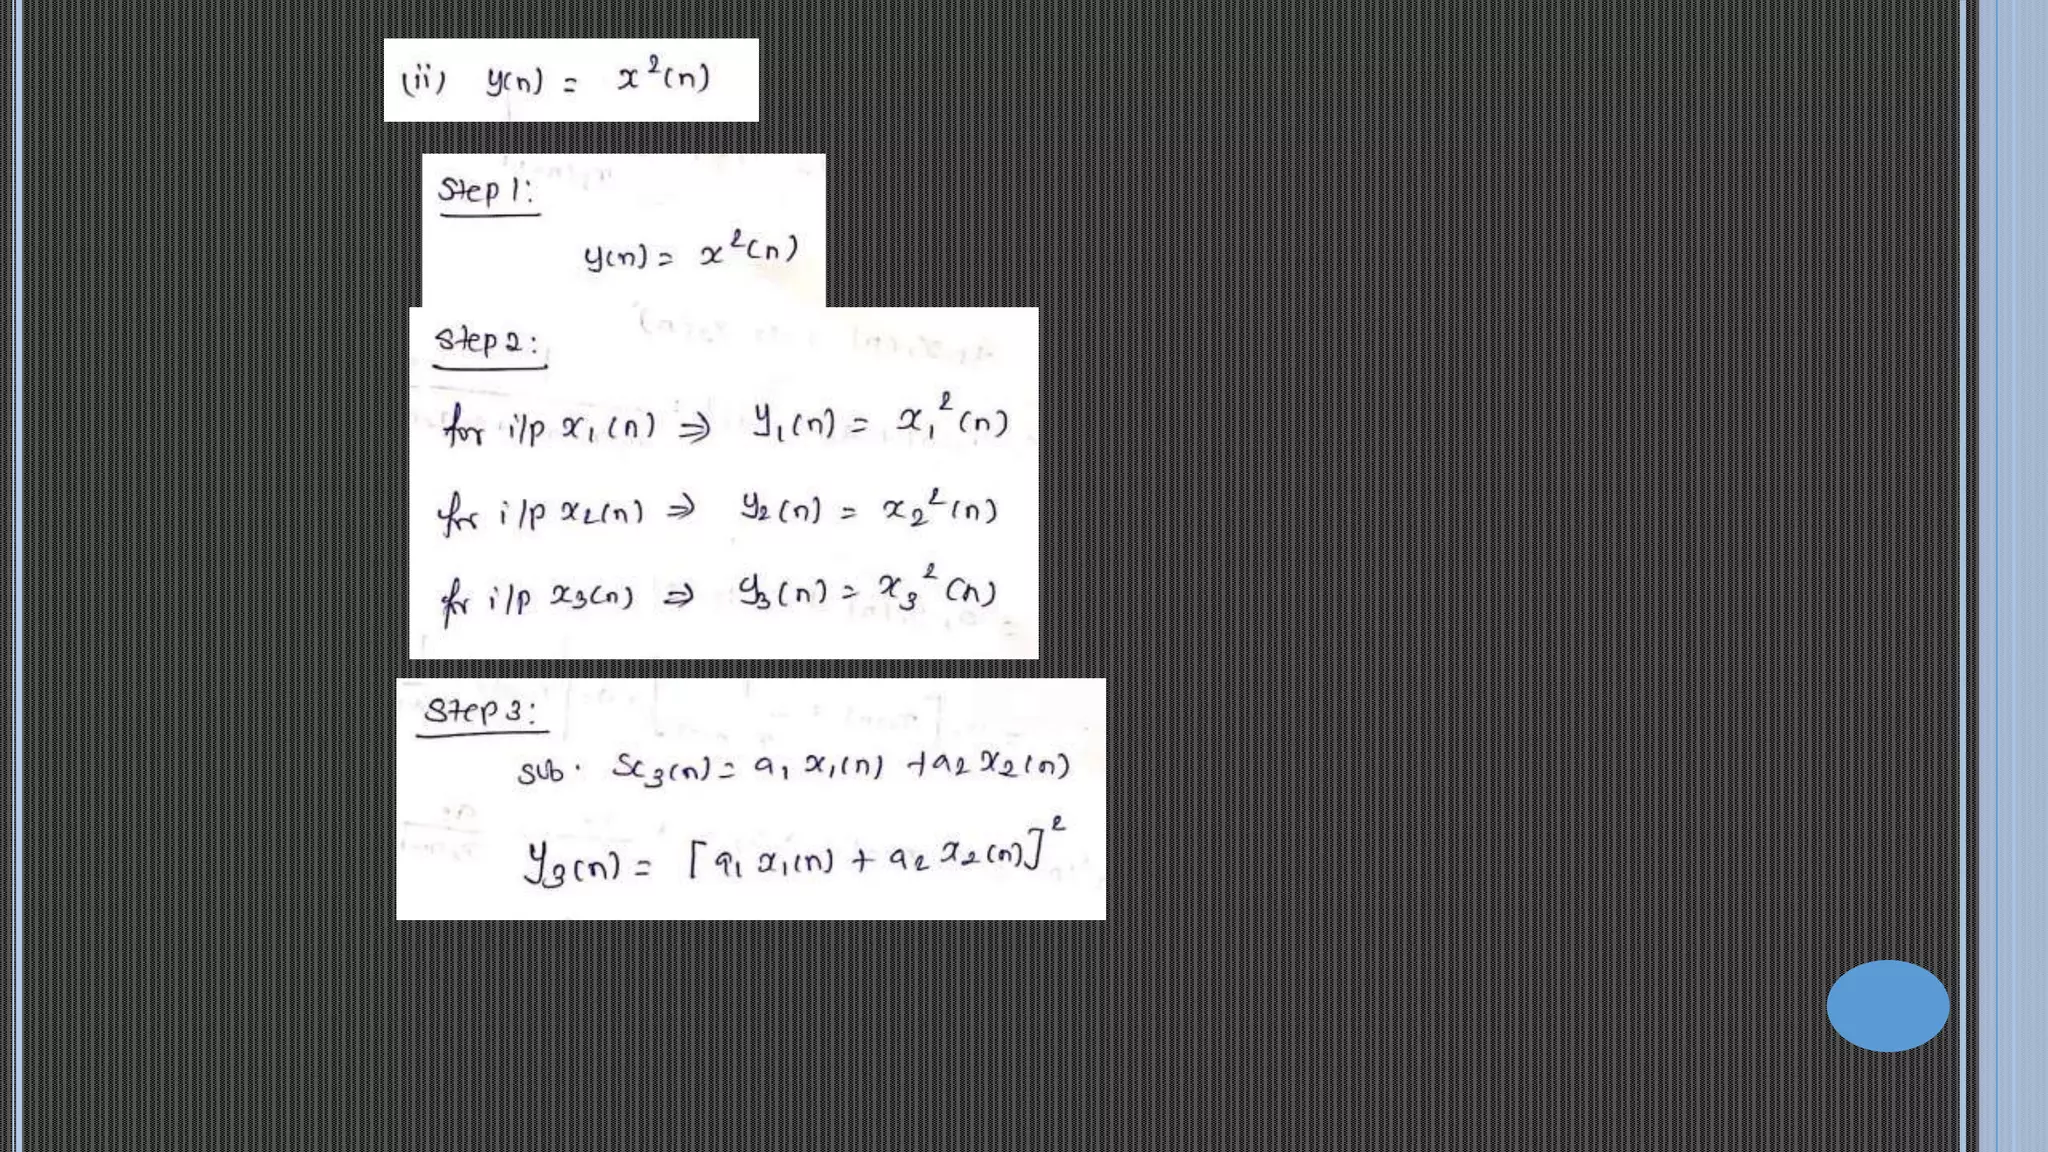 (ii) y(n) = x²(n)
Step 1:
y(n) = x²(n)
Step 2:
for i/p x₁(n) ⇒ y₁(n) = x₁²(n)
for i/p x₂(n) ⇒ y₂(n) = x₂²(n)
for i/p x₃(n) ⇒ y₃(n) = x₃²(n)
Step 3:
sub. x₃(n) = a₁ x₁(n) + a₂ x₂(n)
y₃(n) = [a₁ x₁(n) + a₂ x₂(n)]²